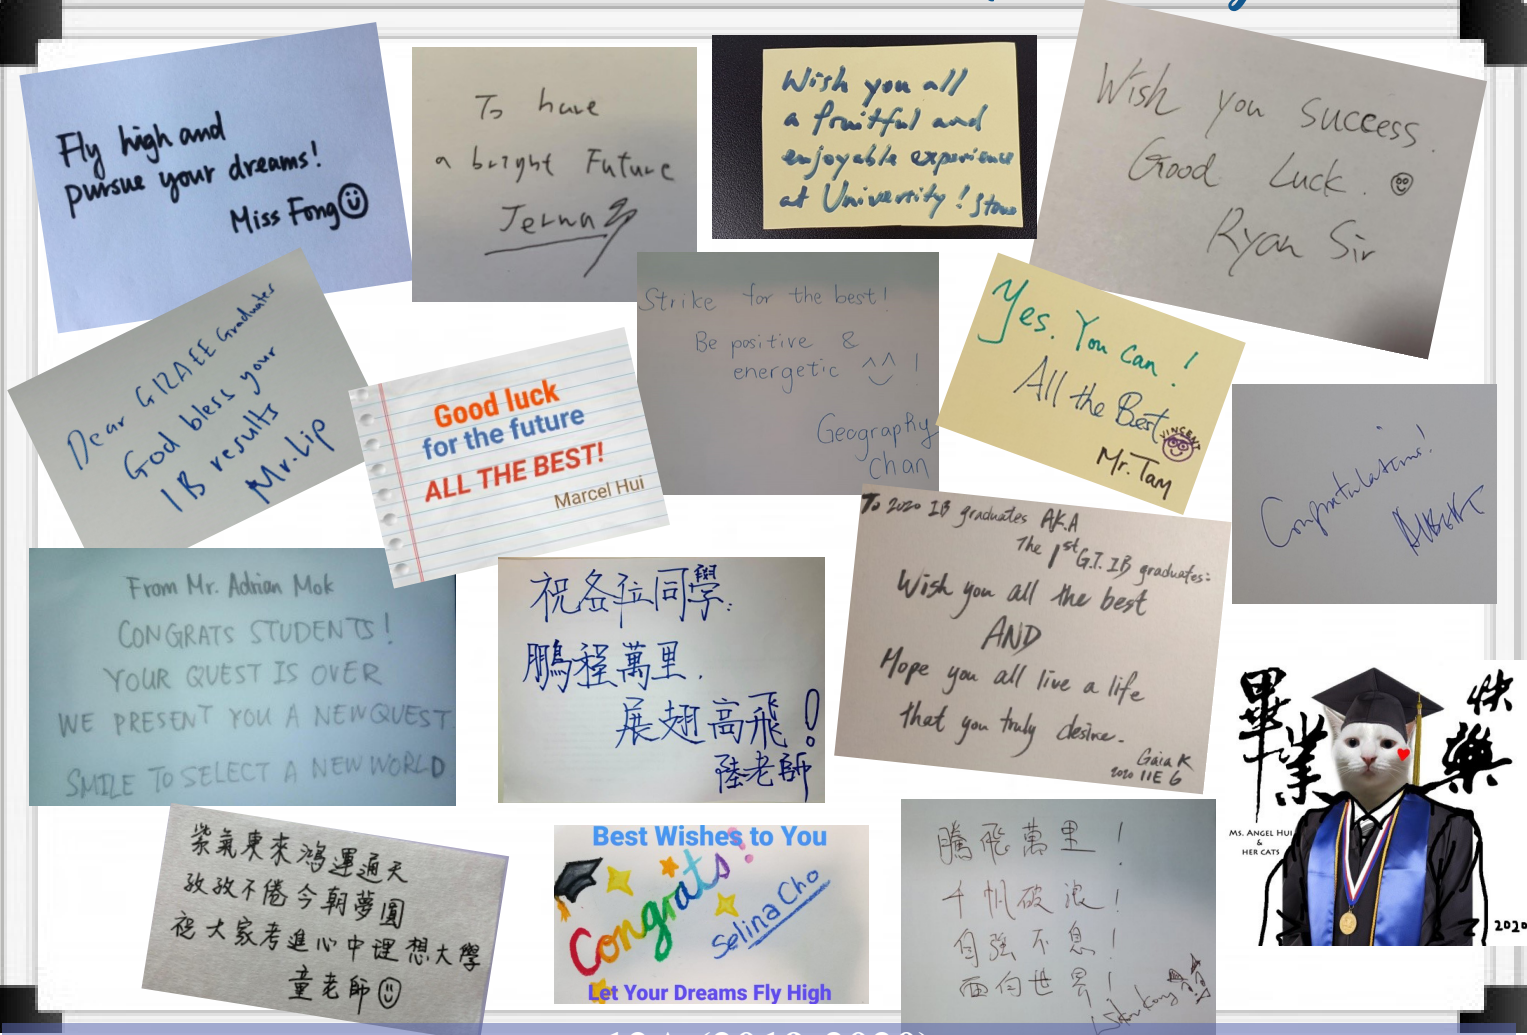 Fly high and
pursue your dreams!
Miss Fong
To have
a bright Future
Wish you all
a fruitful and
enjoyable experience
at University!
Wish you success.
Good Luck.
Ryan Sir
Dear G12A&E Graduates
God bless your
IB results
Mr. Lip
Good luck
for the future
ALL THE BEST!
Marcel Hui
Strike for the best!
Be positive &
energetic ^^ !
Geography
Chan
Yes. You can!
All the Best
VINCENT
Mr. Tam
Congratulations!
ALBERT
From Mr. Adrian Mok
CONGRATS STUDENTS!
YOUR QUEST IS OVER
WE PRESENT YOU A NEW QUEST
SMILE TO SELECT A NEW WORLD
祝各位同學:
鵬程萬里,
展翅高飛!
陸老師
To 2020 IB graduates AKA
The 1st G.T. IB graduates:
Wish you all the best
AND
Hope you all live a life
that you truly desire.
Gaia K
2020 11E 6
畢業
快樂
MS. ANGEL HUI
&
HER CATS
2020
紫氣東來鴻運通天
孜孜不倦今朝夢圓
祝大家考進心中理想大學
童老師
Best Wishes to You
Congrats!
Selina Cho
Let Your Dreams Fly High
騰飛萬里!
千帆破浪!
自強不息!
面向世界!